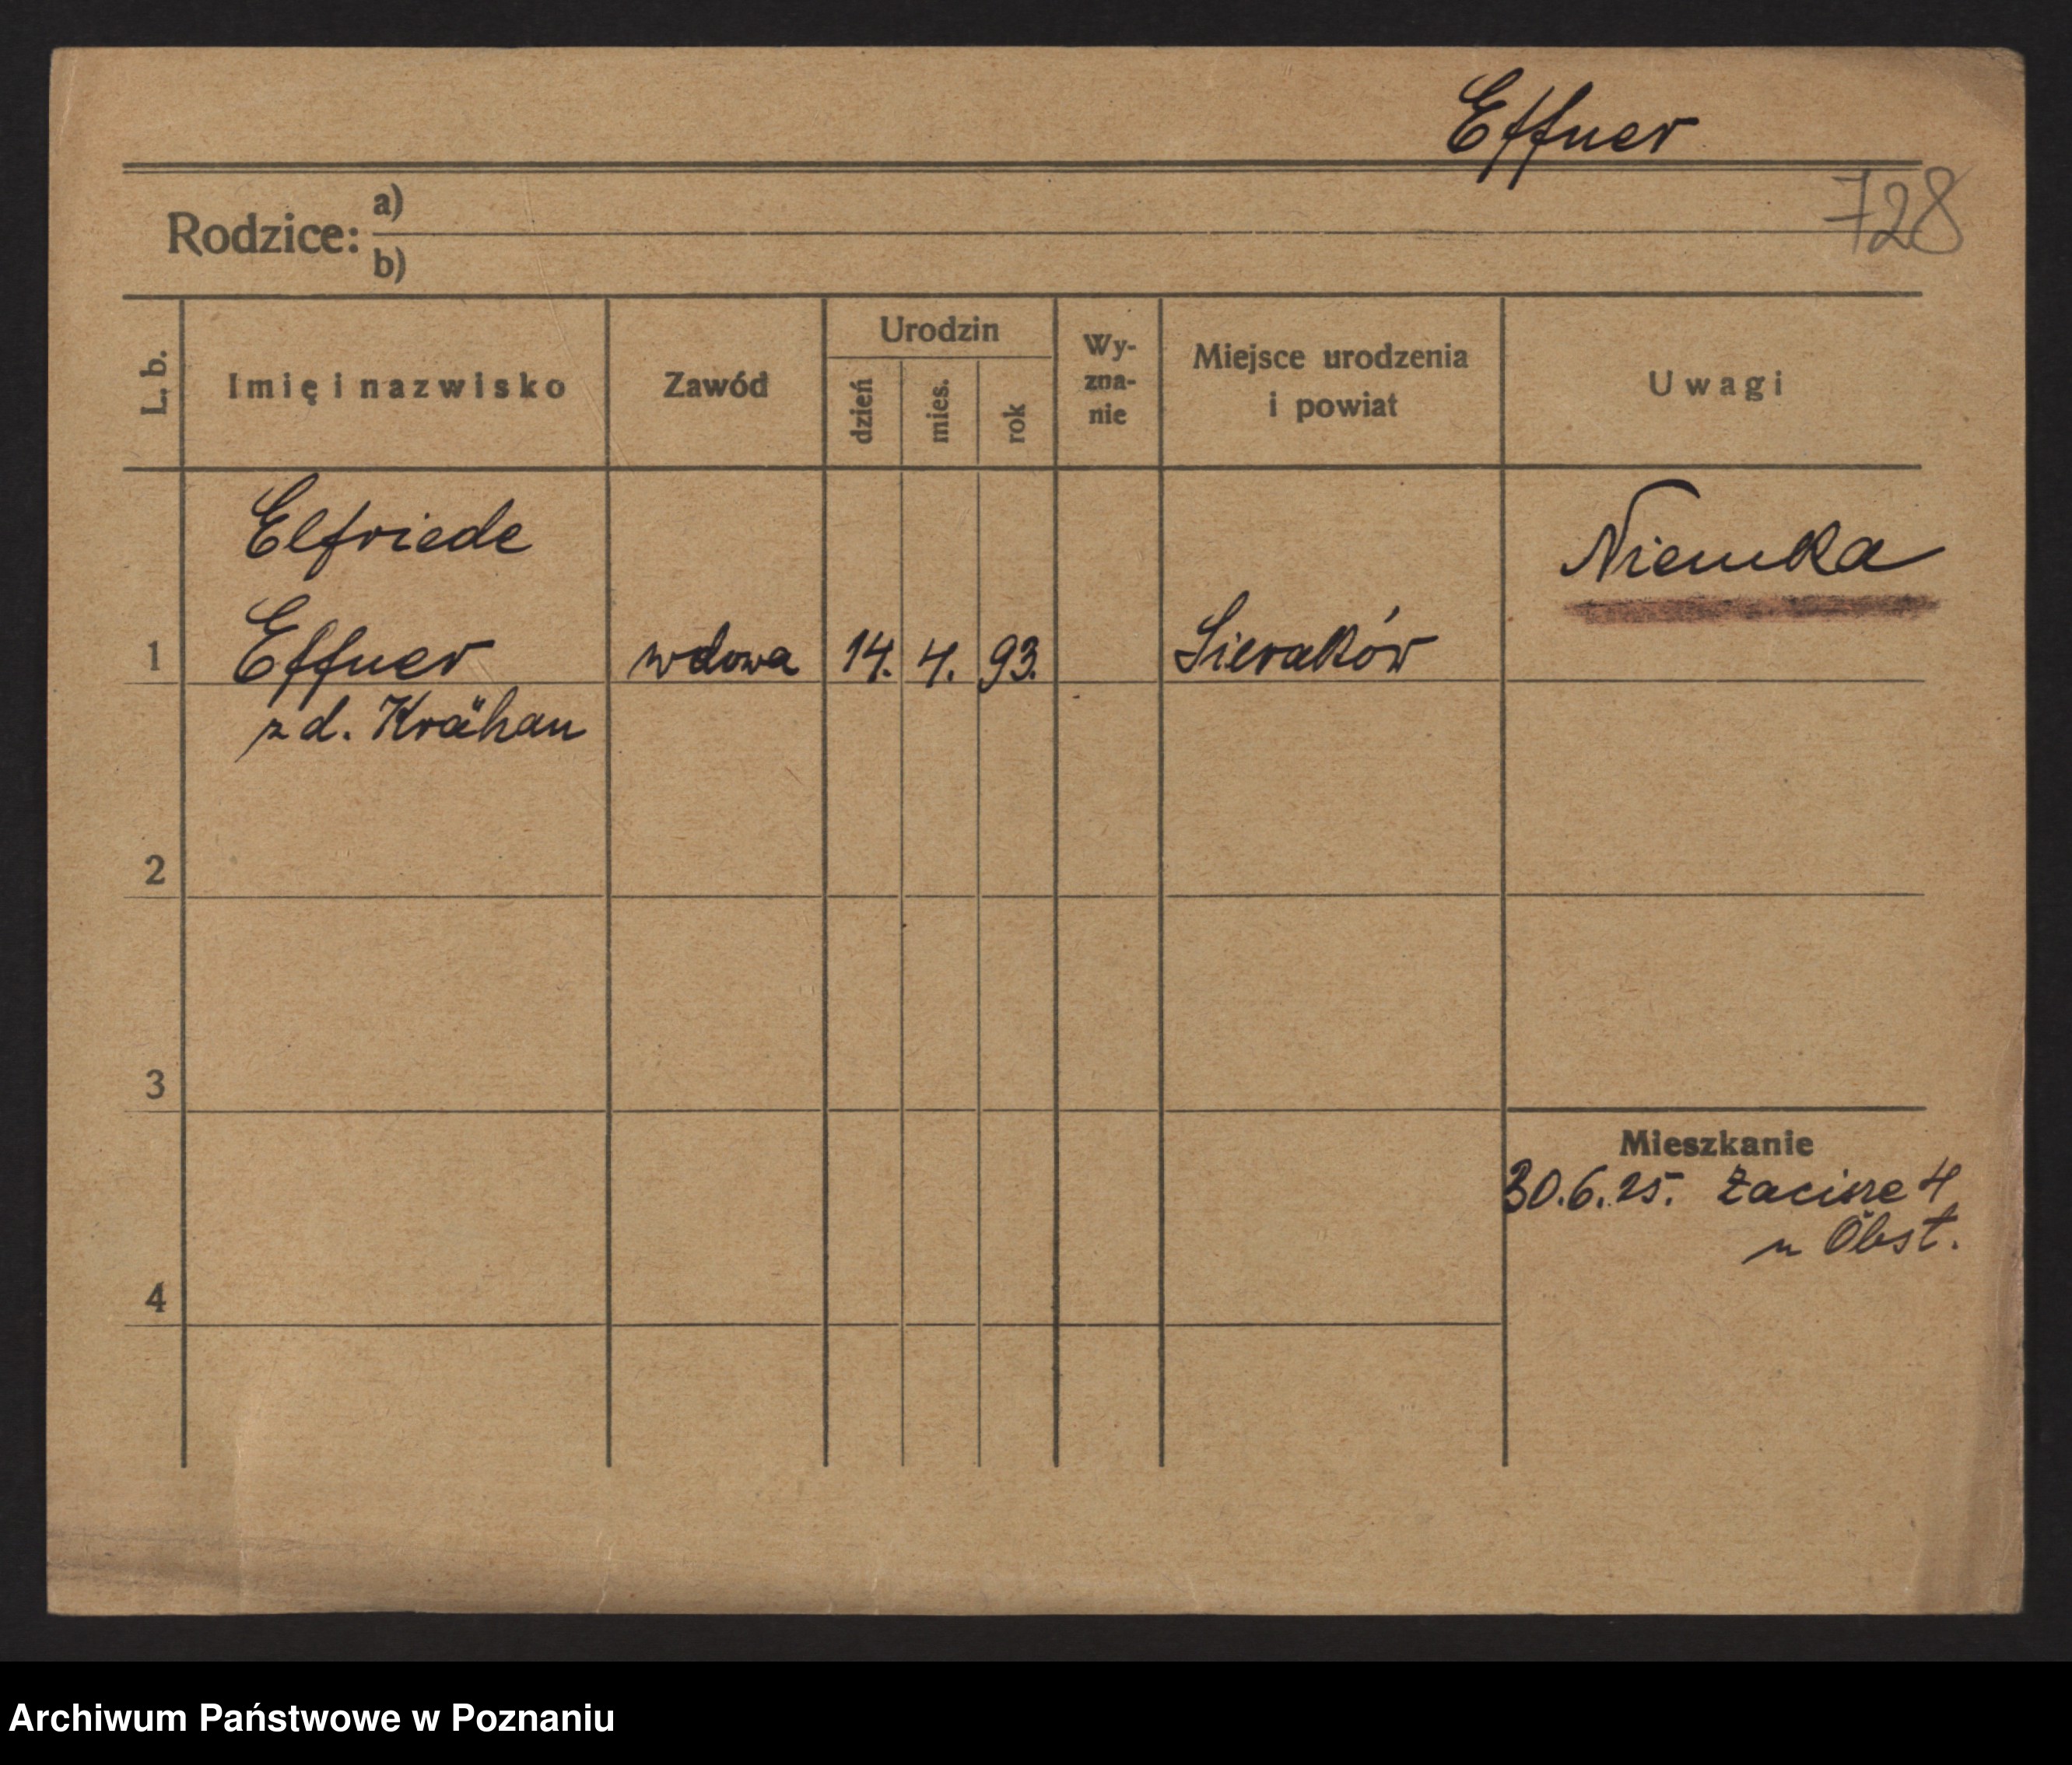 Effner
728
Rodzice: a)
b)
L. b. Imię i nazwisko Zawód Urodzin dzień mies. rok Wy-zna-nie Miejsce urodzenia i powiat Uwagi
Elfriede
Niemka
1 Effner wdowa 14. 4. 93. Sieraków
z d. Krähan
2
3
Mieszkanie
30.6.25. Zacisze 4
u Obst.
4
Archiwum Państwowe w Poznaniu